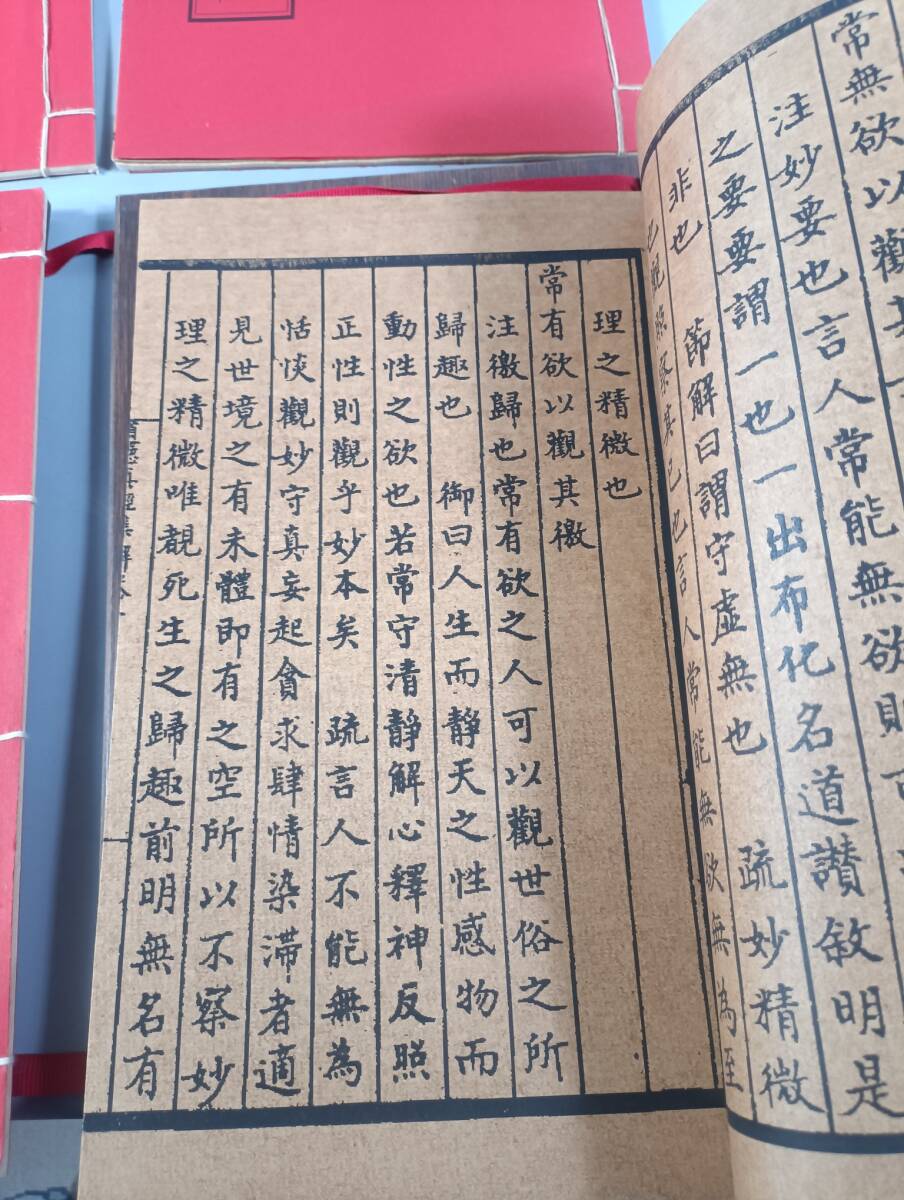 常無欲以觀其
注妙要也言人常能無欲則可
之要要謂一也一出布化名道讚敘明是
非也 節解曰謂守虛無也 疏妙精微
也言人常能無欲無為至
理之精微也
常有欲以觀其徼
注徼歸也常有欲之人可以觀世俗之所
歸趣也 御曰人生而靜天之性感物而
動性之欲也若常守清靜解心釋神反照
正性則觀乎妙本矣 疏言人不能無為
恬惔觀妙守真妄起貪求肆情染滯者適
見世境之有未體即有之空所以不察妙
理之精微唯覩死生之歸趣前明無名有